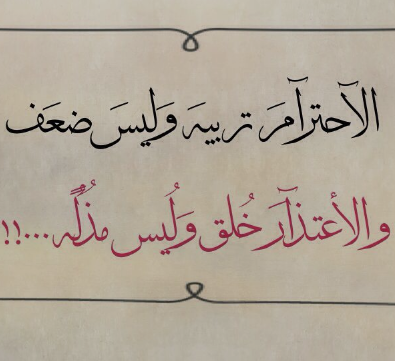 الآحترآمَ تربيہَ وَليسَ ضعَف
والأعتذآرَ خُلق وَلُيس مذُلًہ...!!